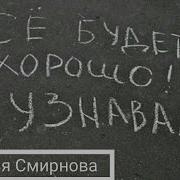 СЁ БУДЕТ
ХОРОШО!
УЗНАВА
я Смирнова